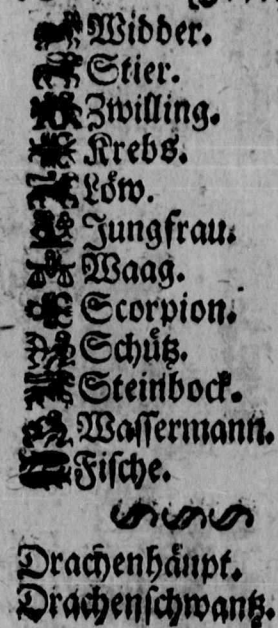 Widder.
Stier.
Zwilling.
Krebs.
Löw.
Jungfrau.
Waag.
Scorpion.
Schütz.
Steinbock.
Wassermann.
Fische.
Drachenhäupt.
Drachenschwantz.